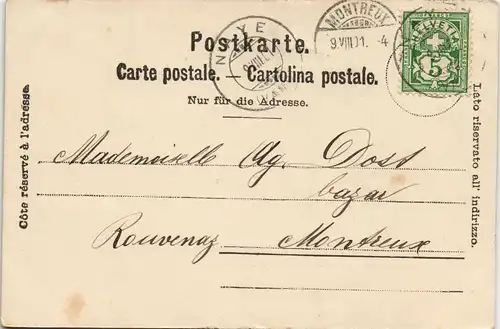 Postkarte.
Carte postale. — Cartolina postale.
Nur für die Adresse.
Côte réservé à l'adresse.
Lato riservato all' indirizzo.
NAYE
MONTREUX
9.VIII.01. -4
HELVETIA
5
Mademoiselle Ag. Dost
bazar
Rouvenaz Montreux